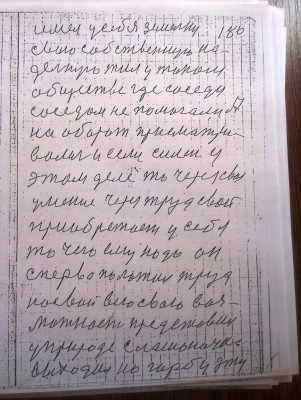 имел у себя земельку 180
свою собственную на-
дельную жил у таком
обществе где соседу
соседом не помогали
на оборот присматри-
вались и если силен у
этом деле то через своё
умение через труд свой
приобретает у себя
то чего ему надо он
сперва положил труд
на его свою воз-
можность
у природе с
выходил на горбу эту